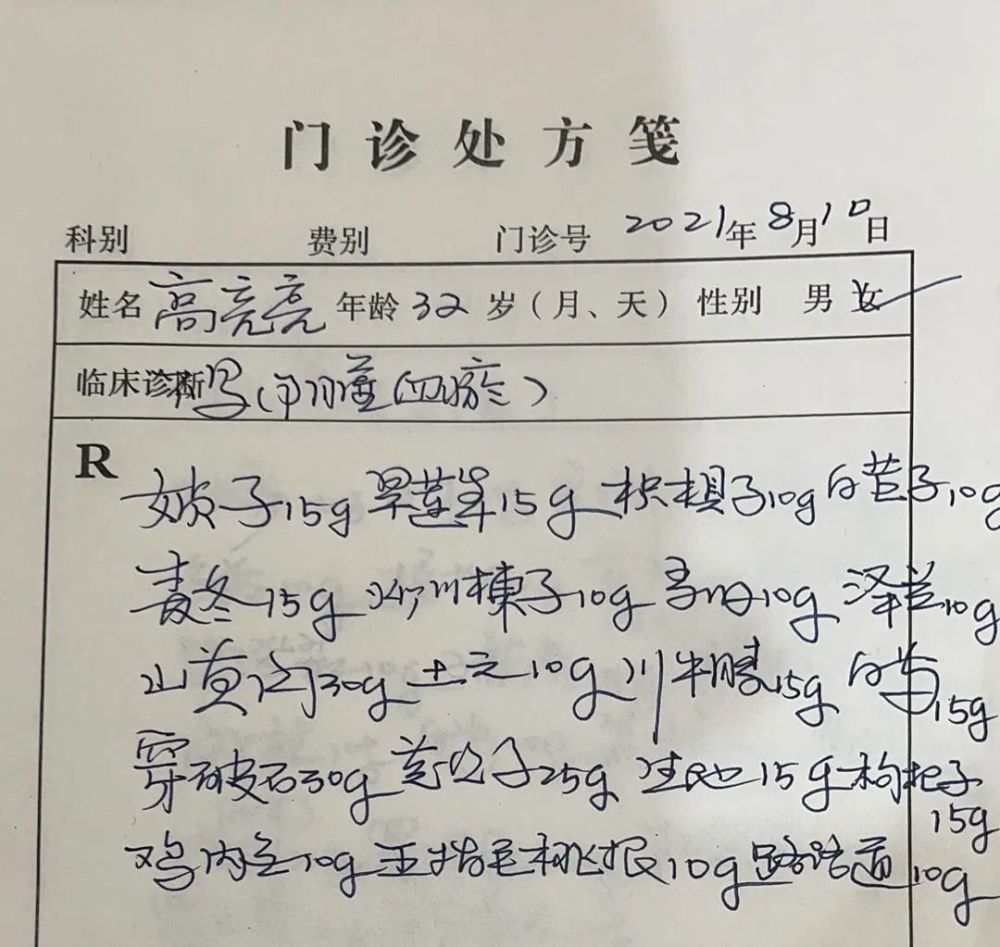 门诊处方笺
科别 费别 门诊号 2021年8月10日
姓名 高亮亮 年龄 32 岁（月、天） 性别 男 女
临床诊断
R
子15g 旱莲草15g 枳椇子10g 白芍子10g
麦冬15g 川楝子10g 10g 泽兰10g
山萸肉30g 土元10g 川牛膝15g 白芍15g
穿破石30g 子25g 生地15g 枸杞子15g
鸡内金10g 五指毛桃根10g 路路通10g